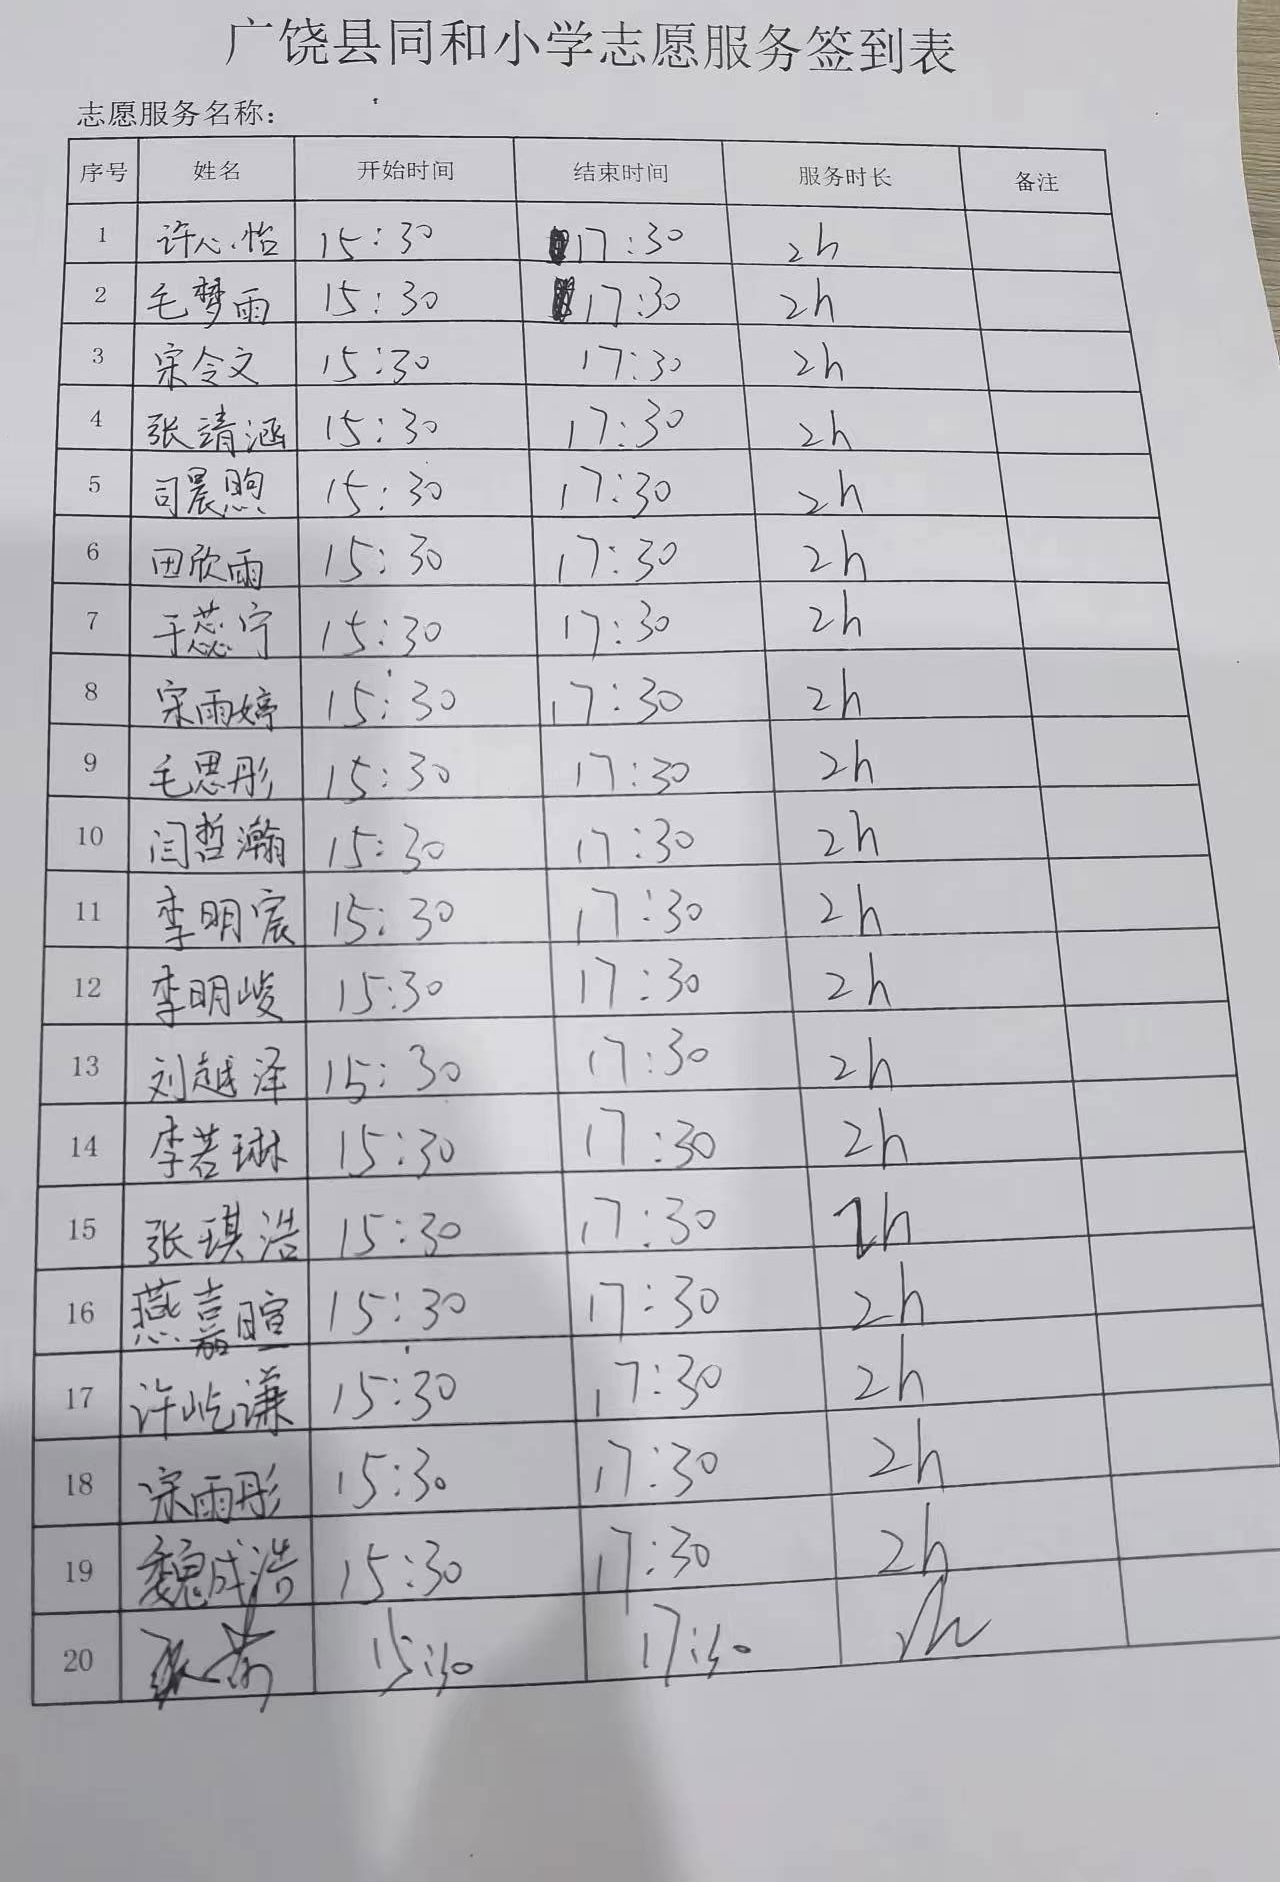 广饶县同和小学志愿服务签到表
志愿服务名称：
序号 姓名 开始时间 结束时间 服务时长 备注
1 许心怡 15:30 17:30 2h
2 毛梦雨 15:30 17:30 2h
3 宋令文 15:30 17:30 2h
4 张清涵 15:30 17:30 2h
5 司晨煦 15:30 17:30 2h
6 田欣雨 15:30 17:30 2h
7 于蕊宁 15:30 17:30 2h
8 宋雨婷 15:30 17:30 2h
9 毛思彤 15:30 17:30 2h
10 闫哲瀚 15:30 17:30 2h
11 李明宸 15:30 17:30 2h
12 李明峻 15:30 17:30 2h
13 刘越泽 15:30 17:30 2h
14 李若琳 15:30 17:30 2h
15 张琪浩 15:30 17:30 2h
16 燕嘉暄 15:30 17:30 2h
17 许屹谦 15:30 17:30 2h
18 宋雨彤 15:30 17:30 2h
19 魏成浩 15:30 17:30 2h
20 张 15:30 17:30 2h